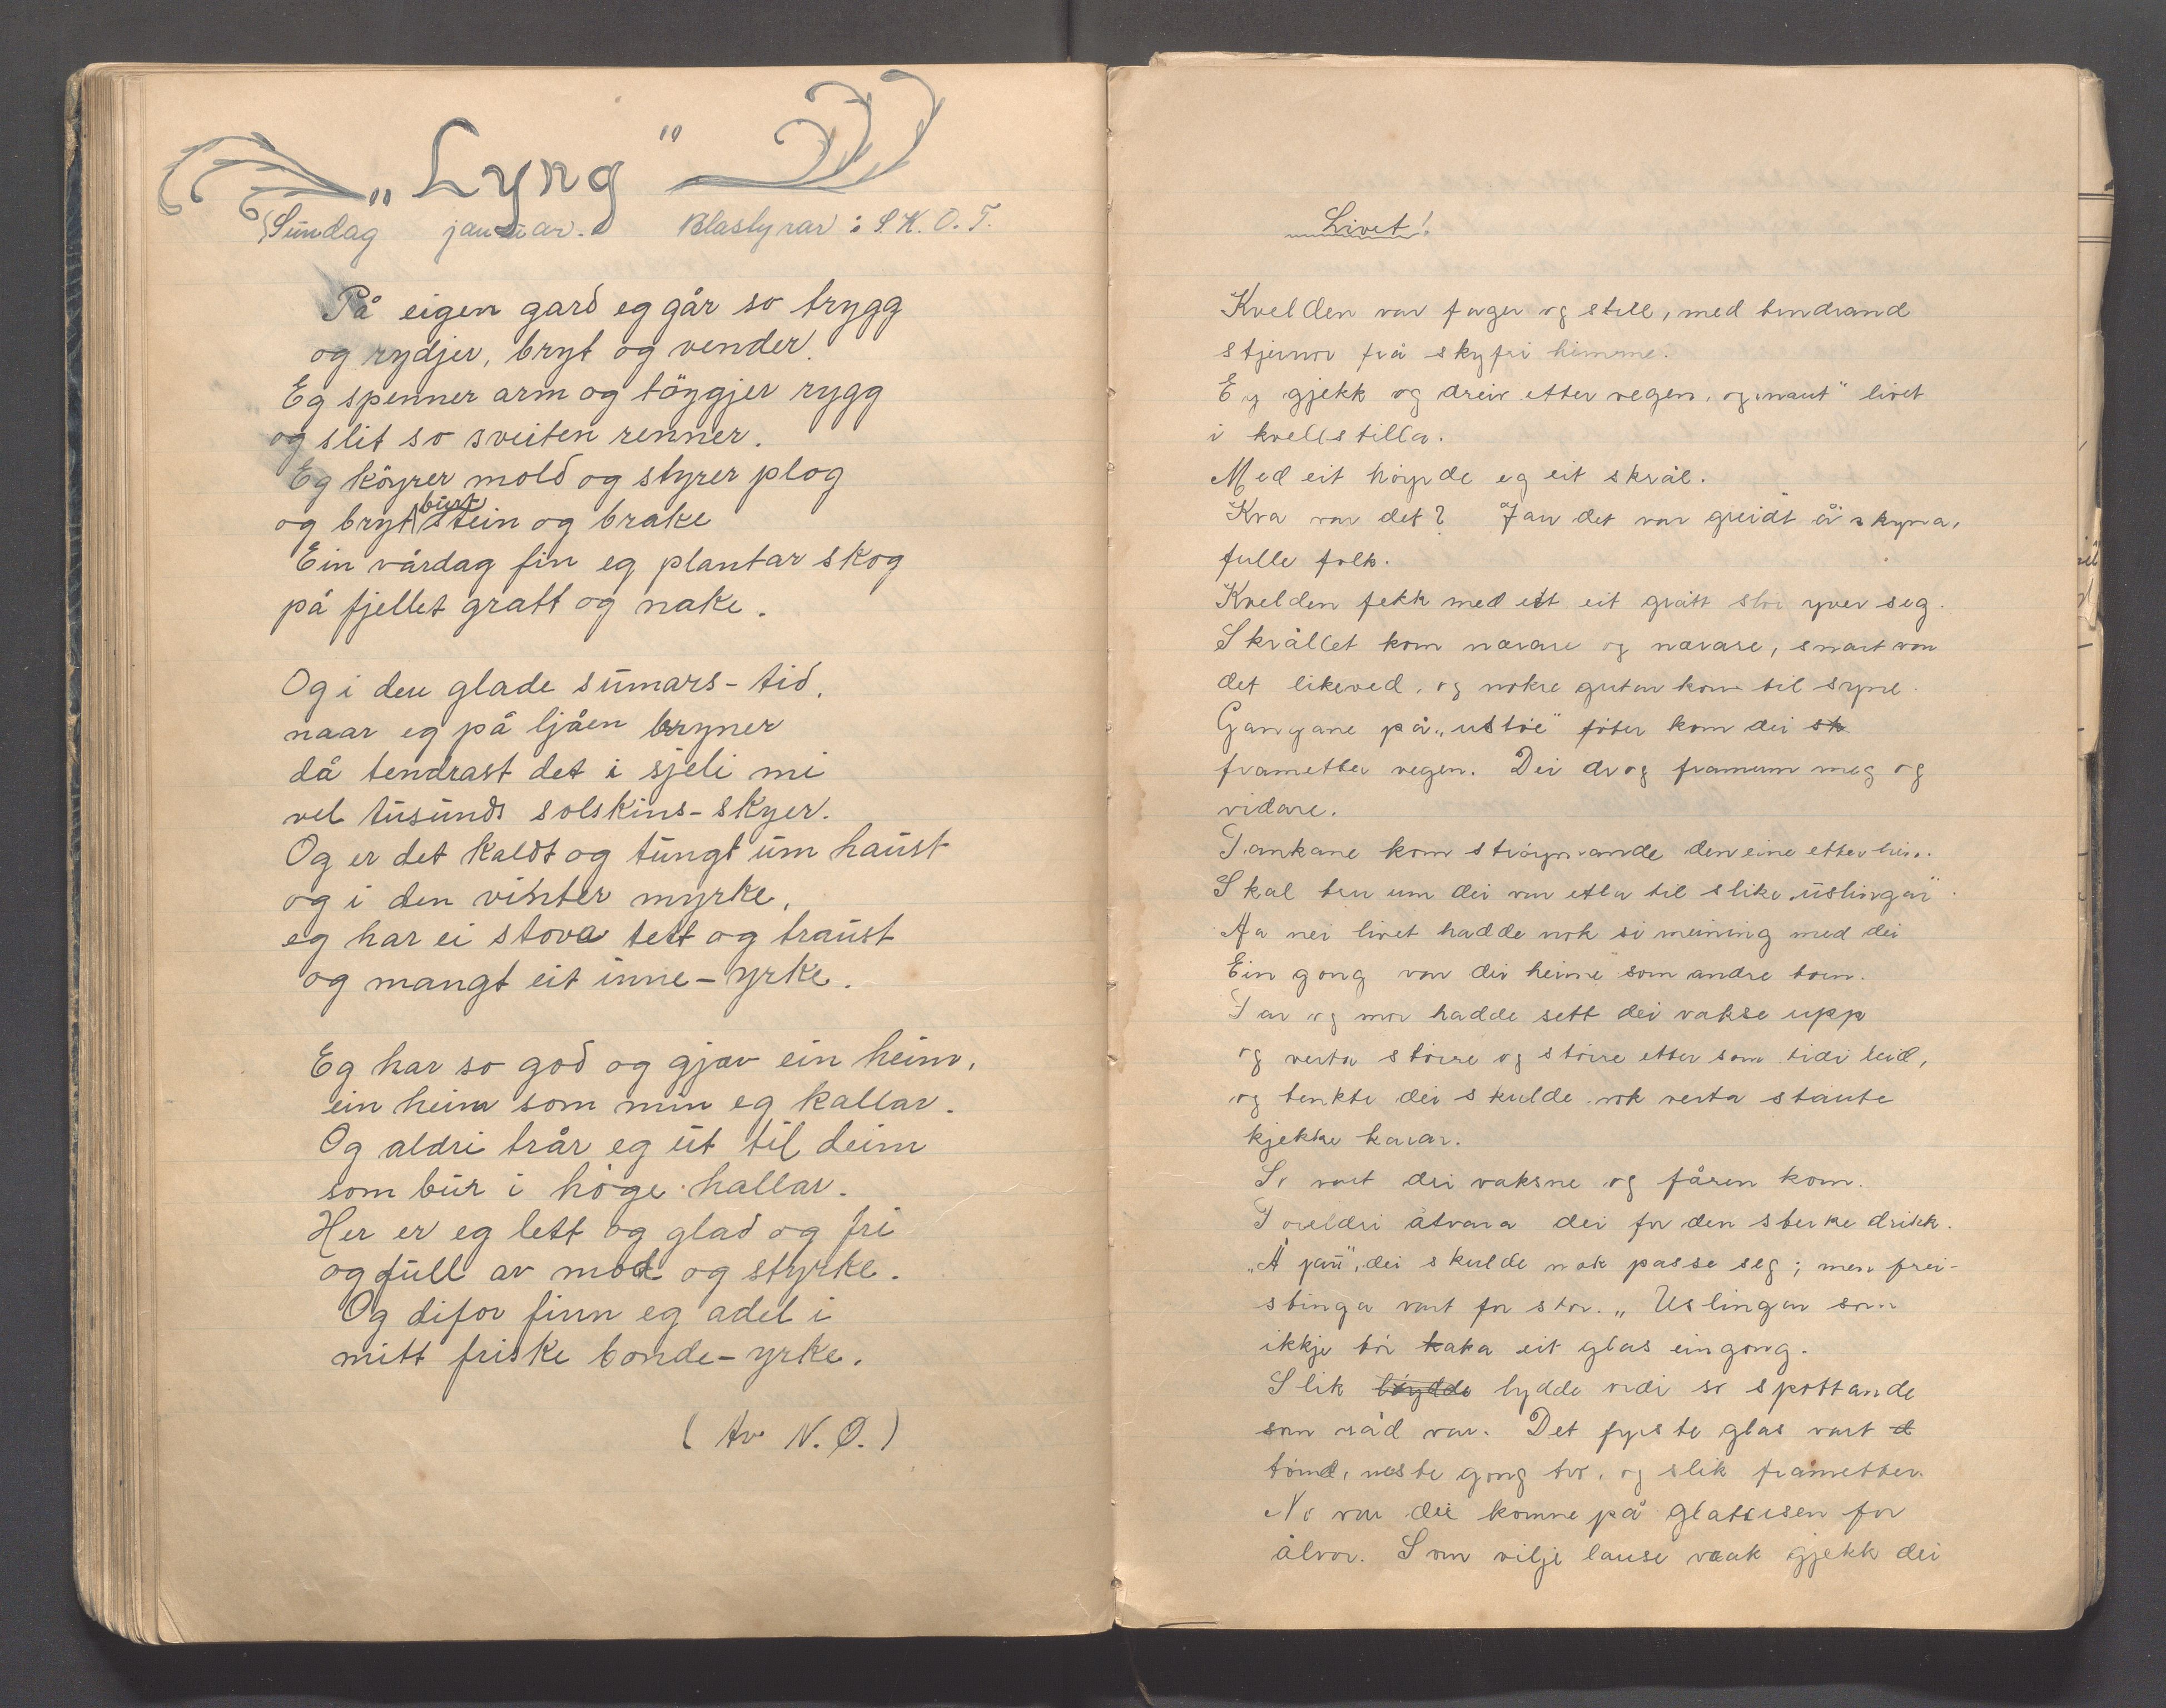 „Lyng"
Sundag januar. Blastyrar: S.K.O.T.
På eigen gard eg går so trygg
og rydjer, bryt og vender.
Eg spenner arm og töygjer rygg
og slit so sveiten renner.
Eg köyrer mold og styrer plog
og bryt burt stein og brake
Ein vårdag fin eg plantar skog
på fjellet gratt og nake.
Og i den glade sumars-tid,
naar eg på ljåen bryner
då tendrast det i sjeli mi
vel tusunds solskins-skyer.
Og er det kaldt og tungt um haust
og i den vinter myrke,
eg har ei stova tett og traust
og mangt eit inne-yrke.
Eg har so god og gjæv ein heim,
ein heim som min eg kallar.
Og aldri trår eg ut til deim
som bur i høge hallar.
Her er eg lett og glad og fri
og full av mot og styrke.
Og difor finn eg adel i
mitt friske bonde-yrke.
(Av N.Ø.)
Livet!
Kvelden var fager og still, med tindrand
stjernor frå skyfri himme.
Eg gjekk og dreiv etter vegen, og „naut" livet
i kvellstilla.
Med eit høyrde eg eit skrål.
Kva var det? Jau det var greidt å skyna,
fulle folk.
Kvelden fekk med eit eit grått slør yver seg.
Skrållet kom nærare og nærare, snart var
det likeved, og nokre gutar kom til syne.
Gangane på „ustøe" føter kom dei sk
frametter vegen. Dei drog framum meg og
vidare.
Tankane kom strøymande den eine etter hin.
Skal tru um dei var etla til slike „uslingar".
Aa nei livet hadde nok si meining med dei
Ein gong var dei heime som andre born.
Far og mor hadde sett dei vakse upp
og verta større og større etter som tidi leid,
og tenkte dei skulde nok verta staute
kjekke karar.
So vart dei vaksne og fåren kom.
Foreldri åtvara dei for den sterke drikk.
„Å jau", dei skulde nok passe seg; men frei-
stinga vart for stor. „Uslingar som
ikkje tør taka eit glas ein gong.
Slik løydde lydde ordi so spottande
som råd var. Det fyrste glas vart d
tømd, neste gong tvo, og slik frametter.
No var dei komne på glattisen for
ålvor. Som vilje lause vrak gjekk dei